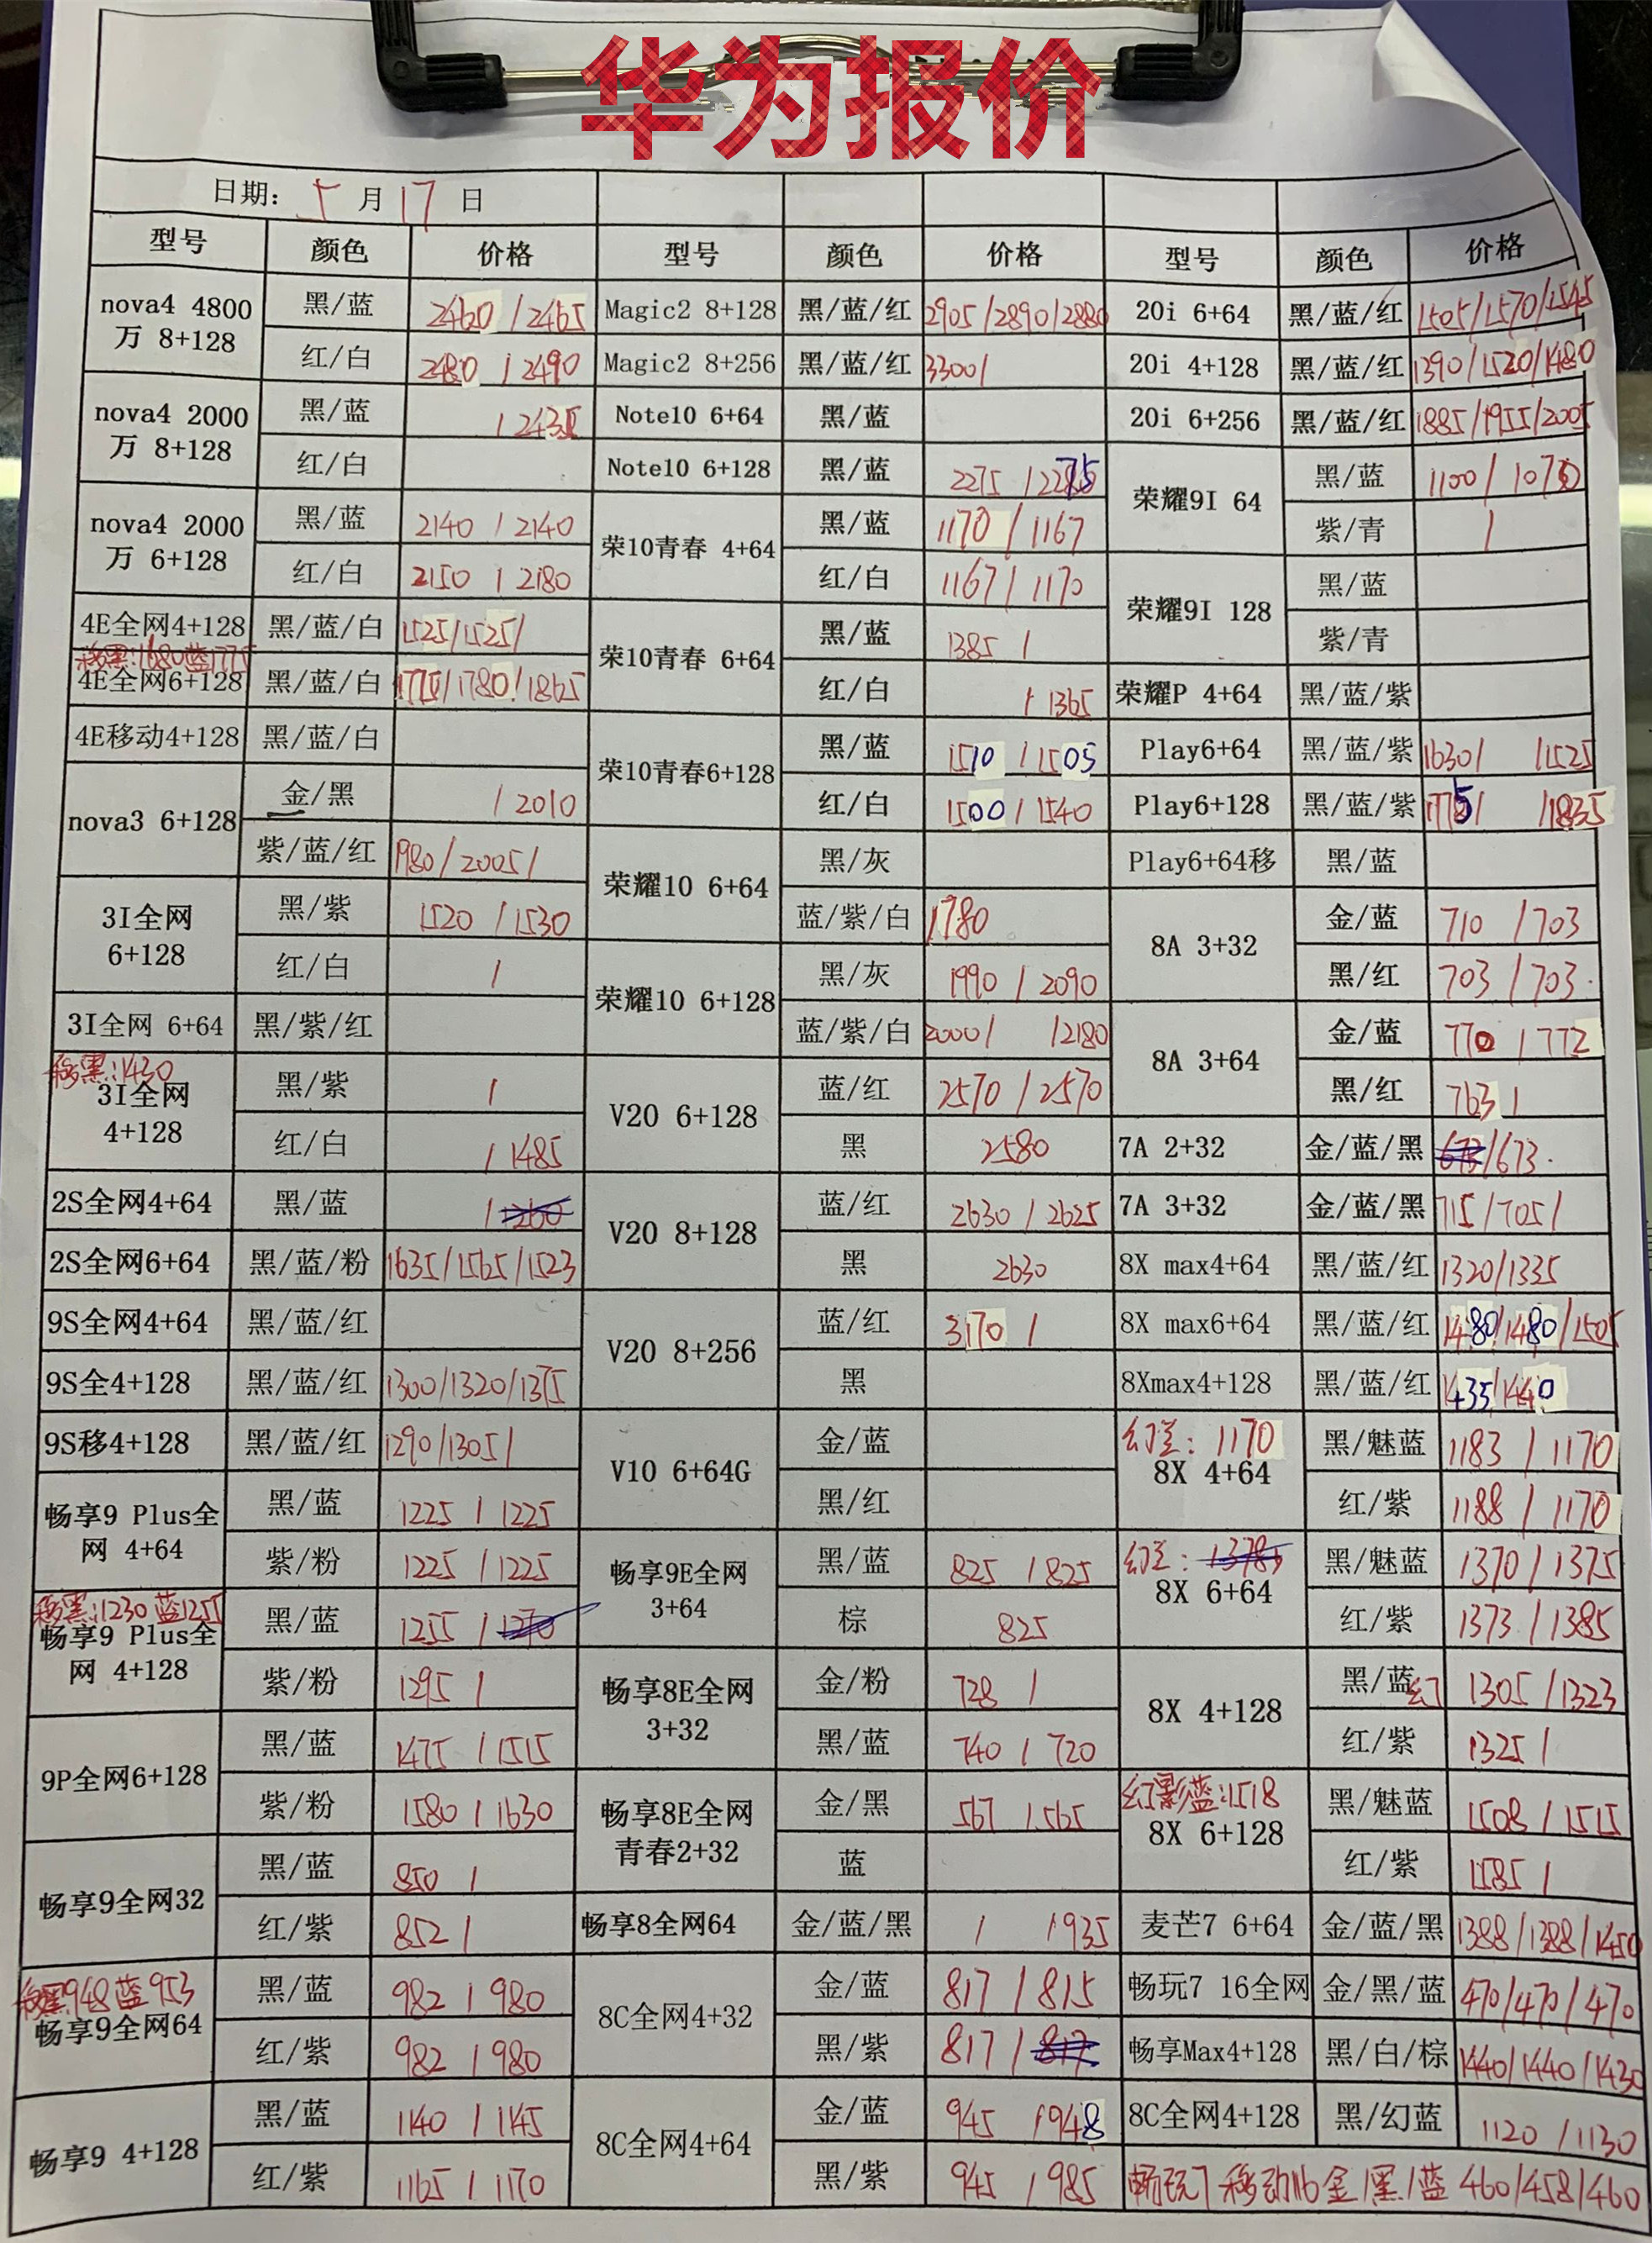 华为报价
日期: 5 月 17 日
型号 颜色 价格 型号 颜色 价格 型号 颜色 价格
nova4 4800万 8+128 黑/蓝 2460/2465 Magic2 8+128 黑/蓝/红 2905/2890/2880 20i 6+64 黑/蓝/红 1505/1570/1545
红/白 2480/2490 Magic2 8+256 黑/蓝/红 3300/ 20i 4+128 黑/蓝/红 1390/1520/1480
nova4 2000万 8+128 黑/蓝 /2435 Note10 6+64 黑/蓝 20i 6+256 黑/蓝/红 1885/1955/2005
红/白 Note10 6+128 黑/蓝 2275/2275 荣耀9I 64 黑/蓝 1100/1070
nova4 2000万 6+128 黑/蓝 2140/2140 荣10青春 4+64 黑/蓝 1170/1167 紫/青 /
红/白 2150/2180 红/白 1167/1170 荣耀9I 128 黑/蓝
4E全网4+128 黑/蓝/白 1525/1525/ 荣10青春 6+64 黑/蓝 1385/ 紫/青
移黑:1680蓝1775
4E全网6+128 黑/蓝/白 1775/1780/1865 红/白 /1365 荣耀P 4+64 黑/蓝/紫
4E移动4+128 黑/蓝/白 荣10青春6+128 黑/蓝 1510/1505 Play6+64 黑/蓝/紫 1630/ /1525
nova3 6+128 金/黑 /2010 红/白 1500/1540 Play6+128 黑/蓝/紫 1775/ /1835
紫/蓝/红 1980/2005/ 荣耀10 6+64 黑/灰 Play6+64移 黑/蓝
3I全网 6+128 黑/紫 1520/1530 蓝/紫/白 1780 8A 3+32 金/蓝 710/703
红/白 / 荣耀10 6+128 黑/灰 1990/2090 黑/红 703/703
3I全网 6+64 黑/紫/红 蓝/紫/白 2000/ /2180 8A 3+64 金/蓝 770/772
移黑:1430
3I全网 4+128 黑/紫 / V20 6+128 蓝/红 2570/2570 黑/红 763/
红/白 /1485 黑 2580 7A 2+32 金/蓝/黑 673/673
2S全网4+64 黑/蓝 /1260 V20 8+128 蓝/红 2630/2625 7A 3+32 金/蓝/黑 715/705/
2S全网6+64 黑/蓝/粉 1635/1565/1523 黑 2630 8X max4+64 黑/蓝/红 1320/1335
9S全网4+64 黑/蓝/红 V20 8+256 蓝/红 3170/ 8X max6+64 黑/蓝/红 1480/1480/1505
9S全4+128 黑/蓝/红 1300/1320/1375 黑 8Xmax4+128 黑/蓝/红 1435/1440
9S移4+128 黑/蓝/红 1290/1305/ V10 6+64G 金/蓝 幻兰: 1170 8X 4+64 黑/魅蓝 1183/1170
畅享9 Plus全网 4+64 黑/蓝 1225/1225 黑/红 红/紫 1188/1170
紫/粉 1225/1225 畅享9E全网 3+64 黑/蓝 825/825 幻兰: 8X 6+64 黑/魅蓝 1370/1375
移黑:1230蓝1255
畅享9 Plus全网 4+128 黑/蓝 1255/1270 棕 825 红/紫 1373/1385
紫/粉 1295/ 畅享8E全网 3+32 金/粉 728/ 8X 4+128 黑/蓝幻 1305/1323
9P全网6+128 黑/蓝 1475/1515 黑/蓝 740/720 红/紫 1325/
紫/粉 1580/1630 畅享8E全网青春2+32 金/黑 567/565 幻影蓝:1518 8X 6+128 黑/魅蓝 1508/1515
畅享9全网32 黑/蓝 850/ 蓝 红/紫 1585/
红/紫 852/ 畅享8全网64 金/蓝/黑 / /935 麦芒7 6+64 金/蓝/黑 1388/1388/1450
移黑:948蓝953
畅享9全网64 黑/蓝 982/980 8C全网4+32 金/蓝 817/815 畅玩7 16全网 金/黑/蓝 470/470/470
红/紫 982/980 黑/紫 817/817 畅享Max4+128 黑/白/棕 1440/1440/1430
畅享9 4+128 黑/蓝 1140/1145 8C全网4+64 金/蓝 945/948 8C全网4+128 黑/幻蓝 1120/1130
红/紫 1165/1170 黑/紫 945/985 畅玩7移动16金/黑/蓝 460/458/460